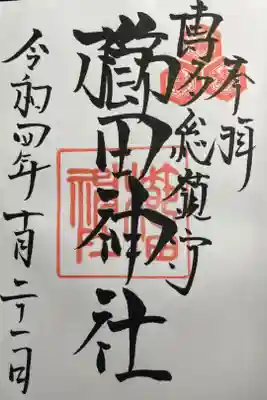 奉拝
博多総鎮守
櫛田神社
令和四年十月二十一日